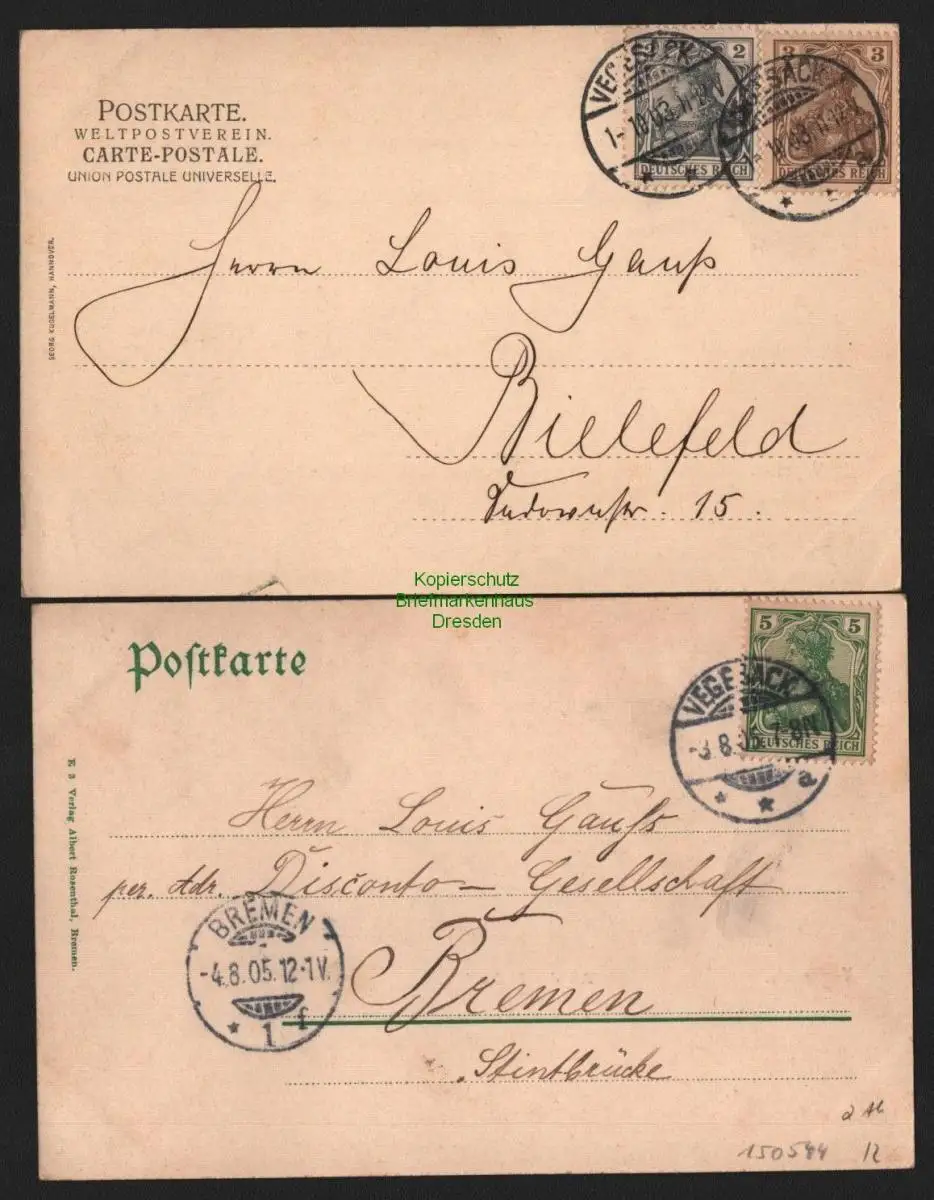 POSTKARTE.
WELTPOSTVEREIN.
CARTE-POSTALE.
UNION POSTALE UNIVERSELLE.
VEGESACK
1-10.03.11-12V
2
DEUTSCHES REICH
VEGESACK
1-10.03.11-12V
a
3
3
DEUTSCHES REICH
GEORG KUGELMANN, HANNOVER.
Herrn Louis Gauß
Bielefeld
15.
Kopierschutz
Briefmarkenhaus
Dresden
Postkarte
5
5
DEUTSCHES REICH
VEGESACK
-3.8.05.7-8N
a
E 3 Verlag Albert Rosenthal, Bremen.
Herrn Louis Gauß
per. Adr. Disconto-Gesellschaft
BREMEN
-4.8.05.12-1V.
* 1 f
Bremen
Stintbrücke
150544
12